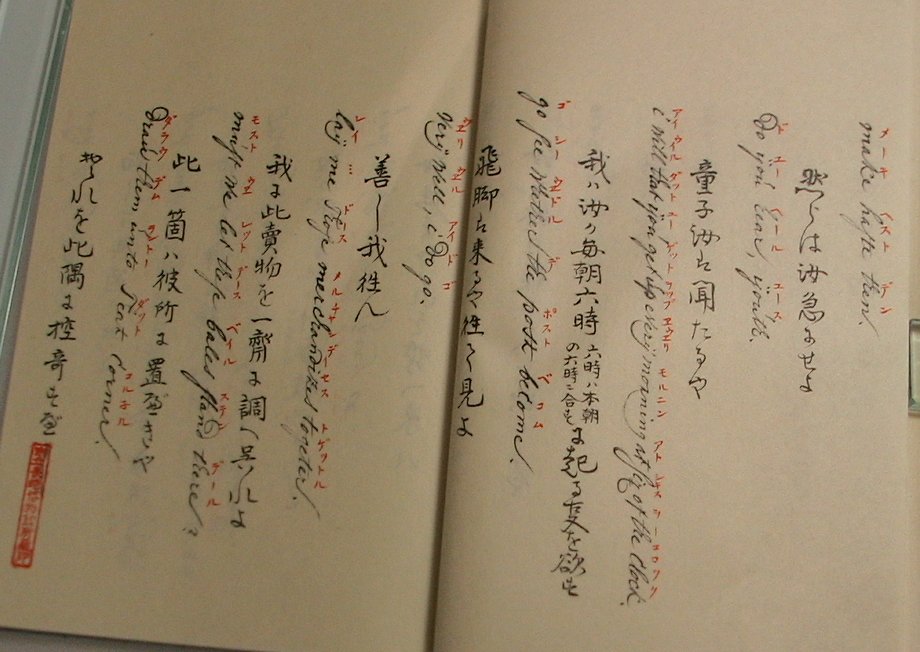 メーキ ヘースト デン
make haste then.
然らは汝急にせよ
ド ユー ヘール ユース
Do you hear, youth.
童子汝は聞たるや
アイ ウイル ダット ユー ゲット ヲップ エウエリ モルニン アト シキス ヲフ コロック
i will that you get up every morning at six of the clock.
我ハ汝カ毎朝六時 六時ハ本朝の六時ニ合す に起る を欲す
ゴ シー ウエドル デ ポスト ベ コム
go see whether the post be come.
飛脚は来るや往て見よ
ウエリ ウエル アイ ド ゴ
very well, i do go.
善し我往ん
レイ ミー ドース メルチャンデーセス トゲットル
lay me those merchandises together.
我に此賣物を一齊に調し呉れよ
モスト ウエ レット デース ベイル ステン デール
must we let these bales stand there?
此一箇ハ彼所に置 きや
ダラウ デム ヲントー ダット コルネル
draw them unto that corner.
其れを此隅に控寄す